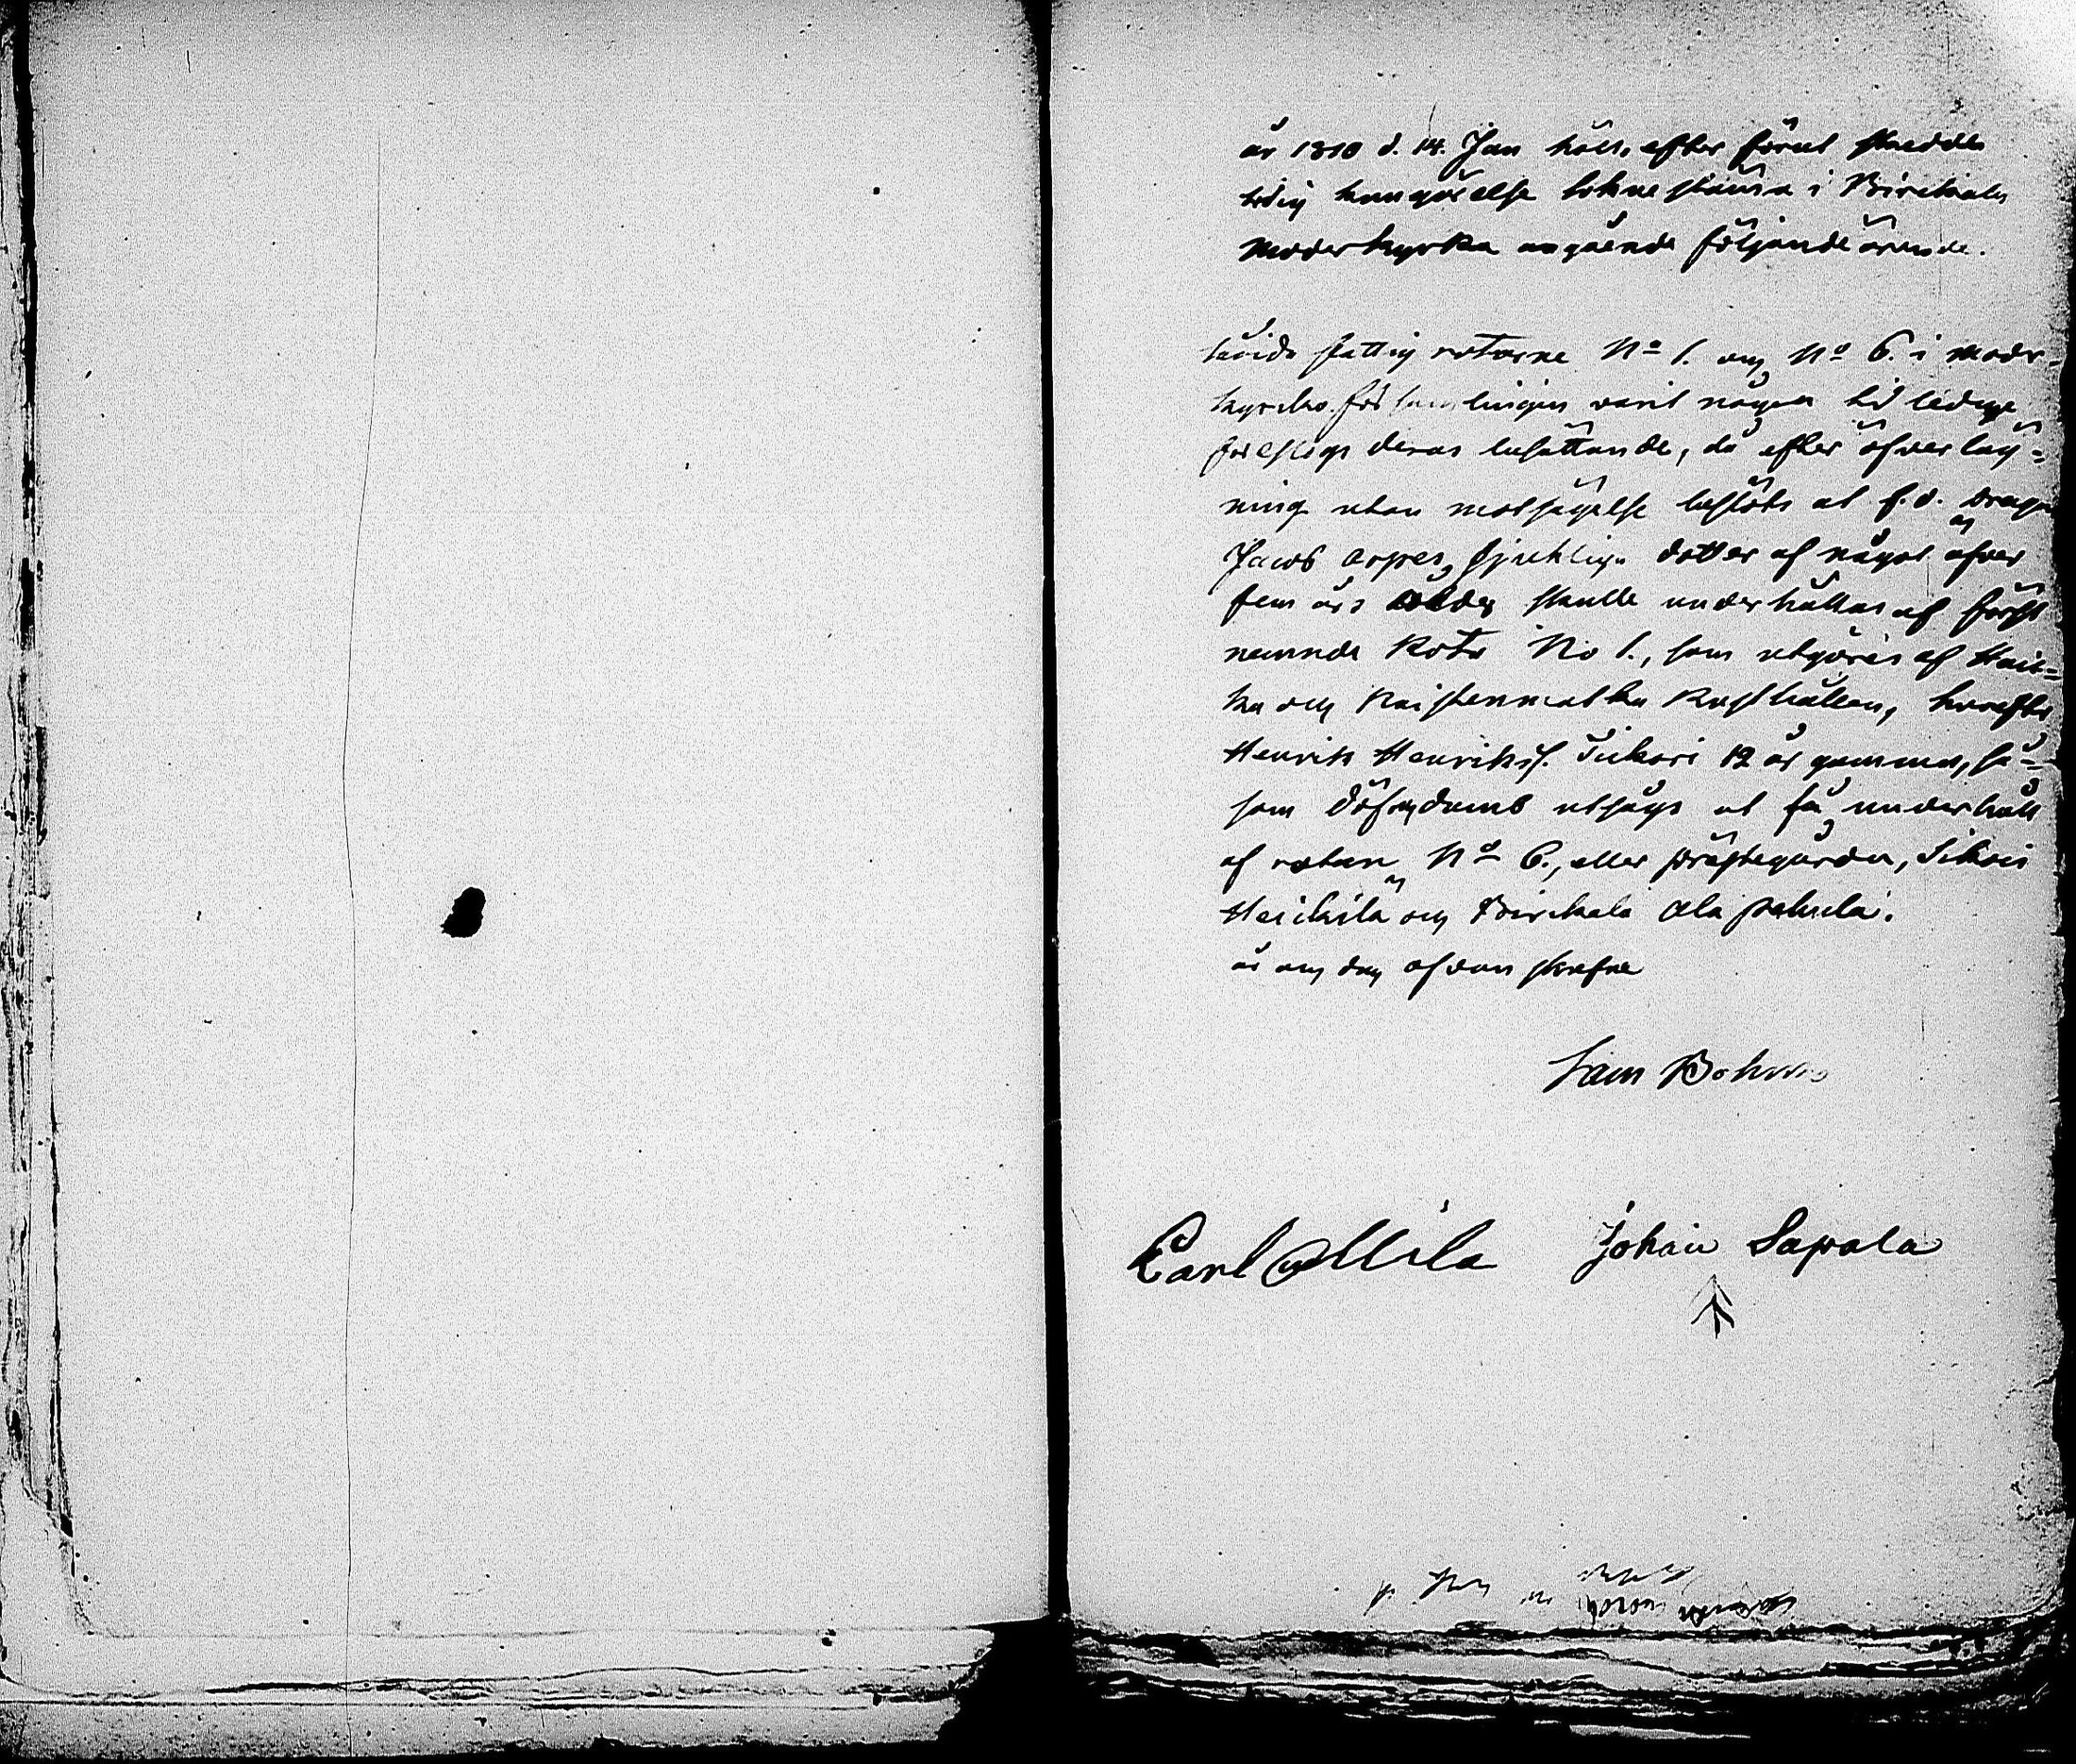 år 1810 d. 14. Jan hölls, efter förut skedde
tidig kungörelse sokne stämma i Birckala
moderkyrka angående följande ärende.
som fattig rotarne No 1. och No 6. i moder-
kyrko församlingen varit någon tid lediga
föreslogs deras besättande, då efter öfverlägg-
ning utan motsägelse beslöts at f.d. Dragon
Jacob Orpes sjukliga dotter af något öfver
fem års ålder skulle underhållas af först
nemnde Rote No 1., som utgöres af Hau-
ka och Kaistenmatka Rusthållen, hvarefter
Henrik Henrikss. Tickari 12 år gammal, så-
som döf och dumb utsågs at få underhåll
af rotan No 6., eller prästegården, Sikois
Heickilä och Birckala Ala Pahula.
år och dag ofvan skrefne
Sam Bohm
Carl Mila Johan Sapala